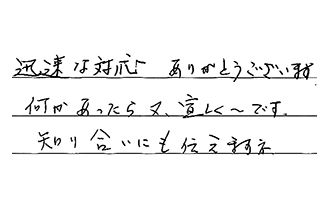 迅速な対応 ありがとうございます
何かあったら又、宜しく〜です.
知り合いにも伝えますネ